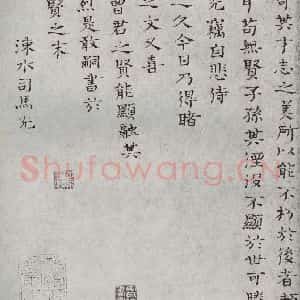 其才志之美所以能不朽於後者
苟無賢子孫其堙沒不顯於世可勝
光竊自悲侍
之久今日乃得睹
之文又喜
曾君之賢能顯融其
烈是敢嗣書於
賢之末
涑水司馬光
Shufawang.CN